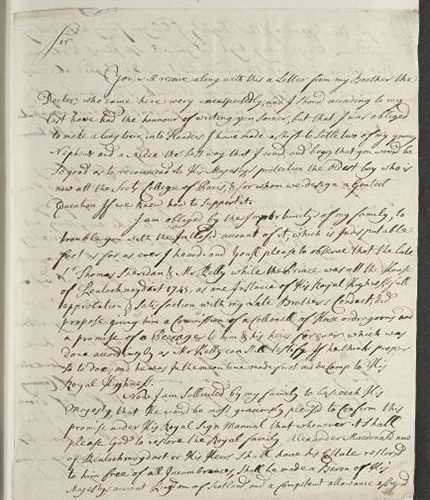 Sir
You will receive along with this a Letter from my Brother the
Doctor who came here very unexpectedly, and I should according to my
last have had the honour of writing you sooner, but that I was obliged
to make a long turn into Flanders I have made a shift to settle two of my young
Nephews and a Niece the best way that I could and begs that you would be
so good as to recommend to His Majesty's protection the eldest boy who is
now att the Scots College of Paris, & for whom we design a Genteel
Education If we knew how to support it.
I am obliged by the Importunity of my family, to
trouble you with the Inclosed account of it, which is Indisputable
fact as far as ever I heard. and you'll please to observe that the late
Sr Thomas Sheridan & Mr Kelly while the Prince was att the House
of Kenlochmoydart 1745, as one Instance of His Royal Highness's full
approbation & Satisfaction with my Late Brothers Conduct, did
propose giving him a Commission of a Collonell of Horse and
a promise of a Peerage to him & his heirs for ever which was
done accordingly as Mr Kelly can still testify If he thinks proper
so to doe, and he was in the mean time made first aid de Camp to His
Royal Highness.
Now I am sollicited by my family to beseech His
Majesty, that He would be most graciously pleased to Confirm this
promise under His Royal Sign Manual that whenever it shall
please God to restore the Royal family, Alexander Macdonald now
of Kenlochmoydart or His Heirs shall have his Estate restored
to him free of all Incumbrances, shall be made a Baron of His
Majestys ancient Kingdom of Scotland and a competent allowance